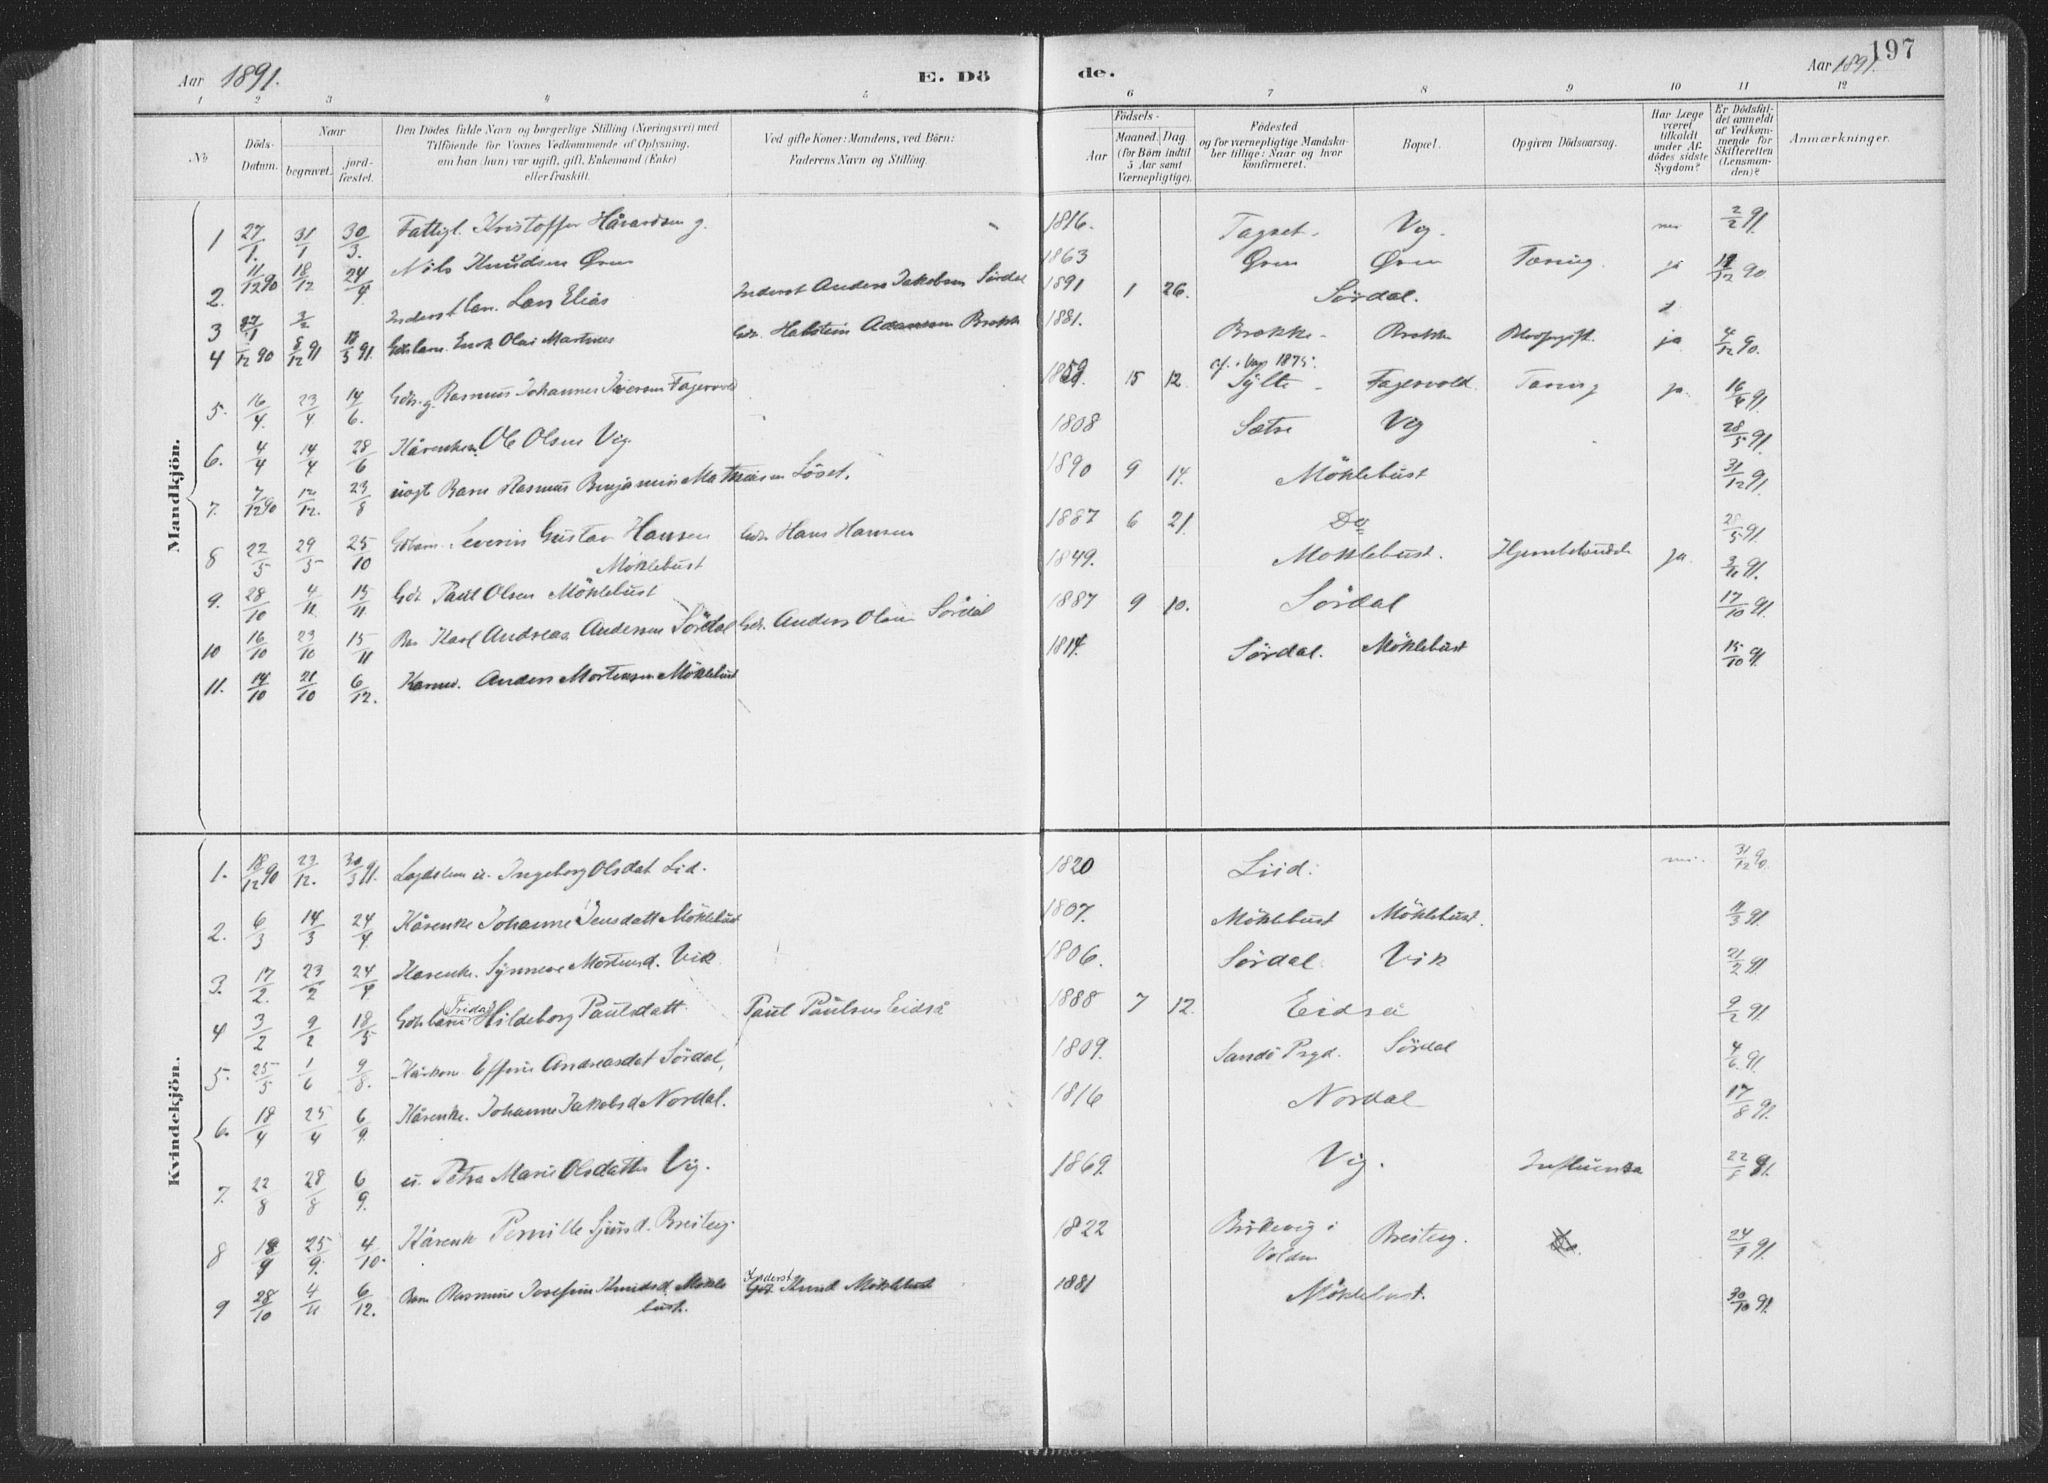 197
Aar 1891.
E. Dö
de.
Aar 1891.
1 2 3 4 5 6 7 8 9 10 11 12
No
Döds-Datum.
Naar
begravet.
jord-fæstet.
Den Dödes fulde Navn og borgerlige Stilling (Næringsvei) med
Tilföiende for Voxnes Vedkommende af Oplysning,
om han (hun) var ugift, gift, Enkemand (Enke)
eller fraskilt.
Ved gifte Koner: Mandens, ved Börn:
Faderens Navn og Stilling.
Födsels-
Aar
Maaned. Dag.
(for Börn indtil
5 Aar samt
Værnepligtige).
Födested
og for værnepligtige Mandska-
ber tillige: Naar og hvor
konfirmeret.
Bopæl.
Opgiven Dödsaarsag.
Har Læge
været
tilkaldt
under Af-
dödes sidste
Sygdom?
Er Dödsfal-
det anmeldt
af Vedkom-
mende for
Skifteretten
(Lensman-
den)?
Anmærkninger.
Mandkjön.
1 27/1. 31/1 30/3. Fattigl. Kristoffer Håvardsen g. 1816. Tagset. Vig. nei 2/2 91.
2. 11/12 90 18/12 24/4 Nils Knudsen Øren 1863 Øren Øren Tæring. ja 12/12 90
3 27/1 3/2 Inderstbarn. Lars Elias Inderst Anders Jakobsen Sördal 1891 1 26. Sördal.
4 /12 90 8/12 91 18/5 91. Gdbbarn. Enok Olai Martinus Gdr. Halstein Adamsen Brekke 1881. Brekke Brekke Blodforgift. ja 4/12 90.
5. 16/4. 23/4 14/6. Gdr. g. Rasmus Johannes Iversen Fagervold 1859 15 12. cf. i Vig 1875. Sylte Fagervold Tæring ja. 16/4 91.
6. 4/4 14/4 28/6 Kårenkem. Ole Olsen Vig. 1808 Sætre Vig 28/5 91.
7. 7/12 90 12/12. 23/8 uægt Barn Rasmus Benjamin Mathiasen Löset. 1890 9 14. Möklebust 31/12 91.
8 22/5 29/5 25/10 Gdbarn. Severin Gustav Hansen Möklebust Gdr Hans Hansen 1887 6 21. Do 28/5 91
9. 28/10 4/11 15/11 Gdr. Paul Olsen Möklebust 1849. Moklebust. Hjernebetændelse ja. 3/11 91.
10 16/10 23/10 15/11 Barn Karl Andreas Andersen Sördal Gdr. Anders Olsen Sördal 1887 9 10. Sördal 17/10 91.
11. 14/10 21/10 6/12. Kaarm. Anders Mortensen Möklebust 1814. Sördal. Möklebust 15/10 91
Kvindekjön.
1. 18/12 90 23/12. 30/3 91. Lægdslem u. Ingeborg Olsdat Lid. 1820 Liid. nei. 31/12 90.
2. 6/3 14/3 24/4. Kårenke Johanne Jensdatt Möklebust 1807. Möklebust Möklebust. 11/3 91.
3. 17/2. 23/2 24/4 Kårenke. Synneve Mortensd. Vik. 1806. Sördal. Vik 21/2 91
4 3/2 9/2 18/5 Gdbbarn Frida Hildeborg Paulsdatt. Paul Paulsen Eidså 1888 7 12. Eidså 9/2 91.
5. 25/5 1/6 9/8. Kårkon. Effine Andreasdat Sördal, 1809. Sandö Prgd. Sördal 4/6 91.
6. 18/4 25/4 6/9. Kårenke. Johanne Jakobsd Nordal. 1816 Nordal 17/8 91.
7. 22/8 28/8 6/9. u. Petra Marie Olsdatter Vig. 1869. Vig. Influensa 22/8 91.
8 18/9 25/9. 4/10. Kårenk Pernille Sjursd. Breiteig. 1822 Birkevig i Volden Breiteig. 24/9 91.
9 28/10 4/11 6/12. Barn Rasmine Josefine Knudsd. Möklebust. Inderst Knud Möklebust 1881 Möklebust. 30/10 91.